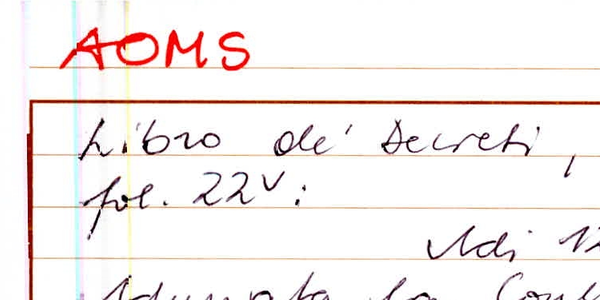 AOMS
Libro de' Decreti,
fol. 22v:
Adi 12
Adunata la Con